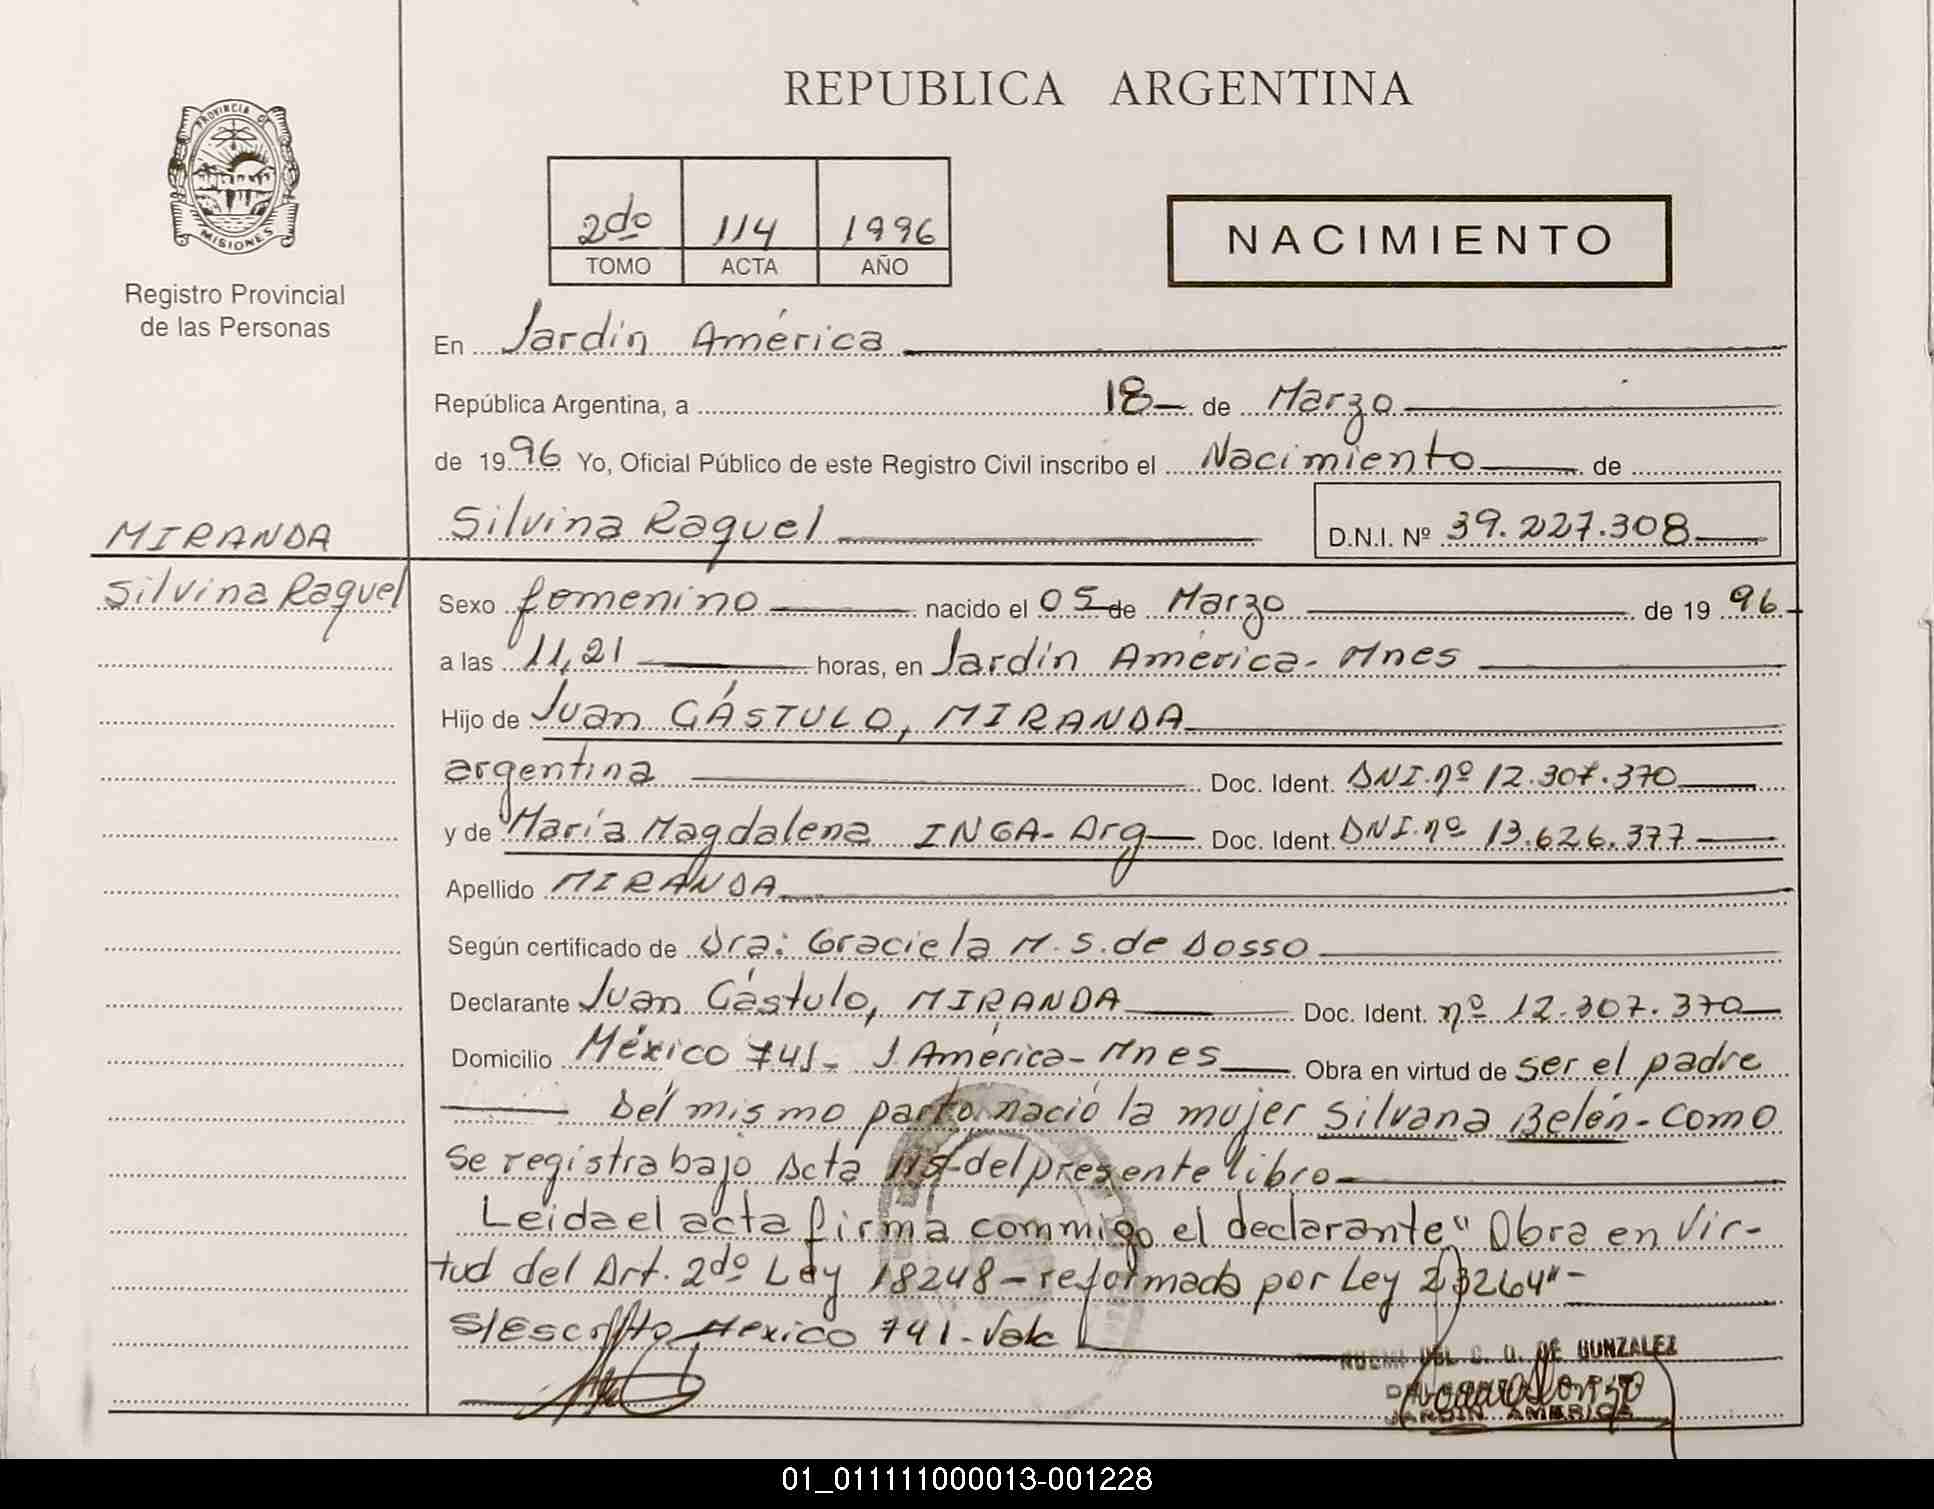 REPUBLICA ARGENTINA
PROVINCIA DE
MISIONES
Registro Provincial
de las Personas
2do 114 1996
TOMO ACTA AÑO
NACIMIENTO
En Jardín América
República Argentina, a 18 de Marzo
de 1996 Yo, Oficial Público de este Registro Civil inscribo el Nacimiento de
MIRANDA
Silvina Raquel
Silvina Raquel D.N.I. Nº 39.227.308
Sexo femenino nacido el 05 de Marzo de 1996
a las 11,21 horas, en Jardín América - Mnes
Hijo de Juan CÁSTULO, MIRANDA
argentina Doc. Ident. DNI. nº 12.307.370
y de María Magdalena INGA - Arg Doc. Ident. DNI. nº 13.626.377
Apellido MIRANDA
Según certificado de Dra: Graciela M. S. de Dosso
Declarante Juan Cástulo, MIRANDA Doc. Ident. nº 12.307.370
Domicilio México 741 - J. América - Mnes Obra en virtud de ser el padre
Del mismo parto nació la mujer Silvana Belén - como
se registra bajo Acta 115 - del presente libro
Leida el acta firma conmigo el declarante " Obra en Vir-
tud del Art. 2do Ley 18248 - reformada por Ley 23264" -
S/Escrito Mexico 741 - Vale
DE GONZALEZ
JARDIN AMERICA
01_011111000013-001228